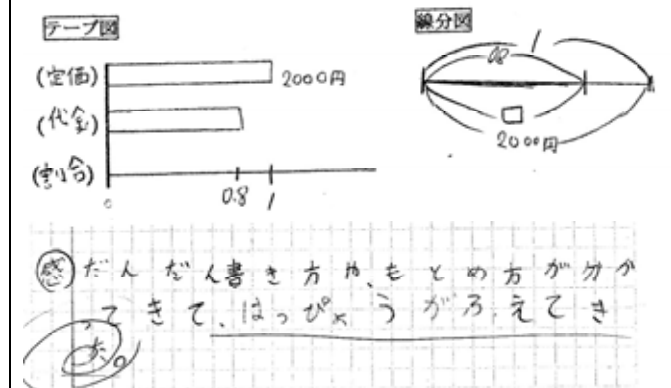 テープ図
線分図
(定価) 2000円
(代金)
(割合)
0 0.8 1
1
0.8
□
2000円
感 だんだん書き方や、もとめ方が分か
ってきて、はっぴょうがふえてき
た。